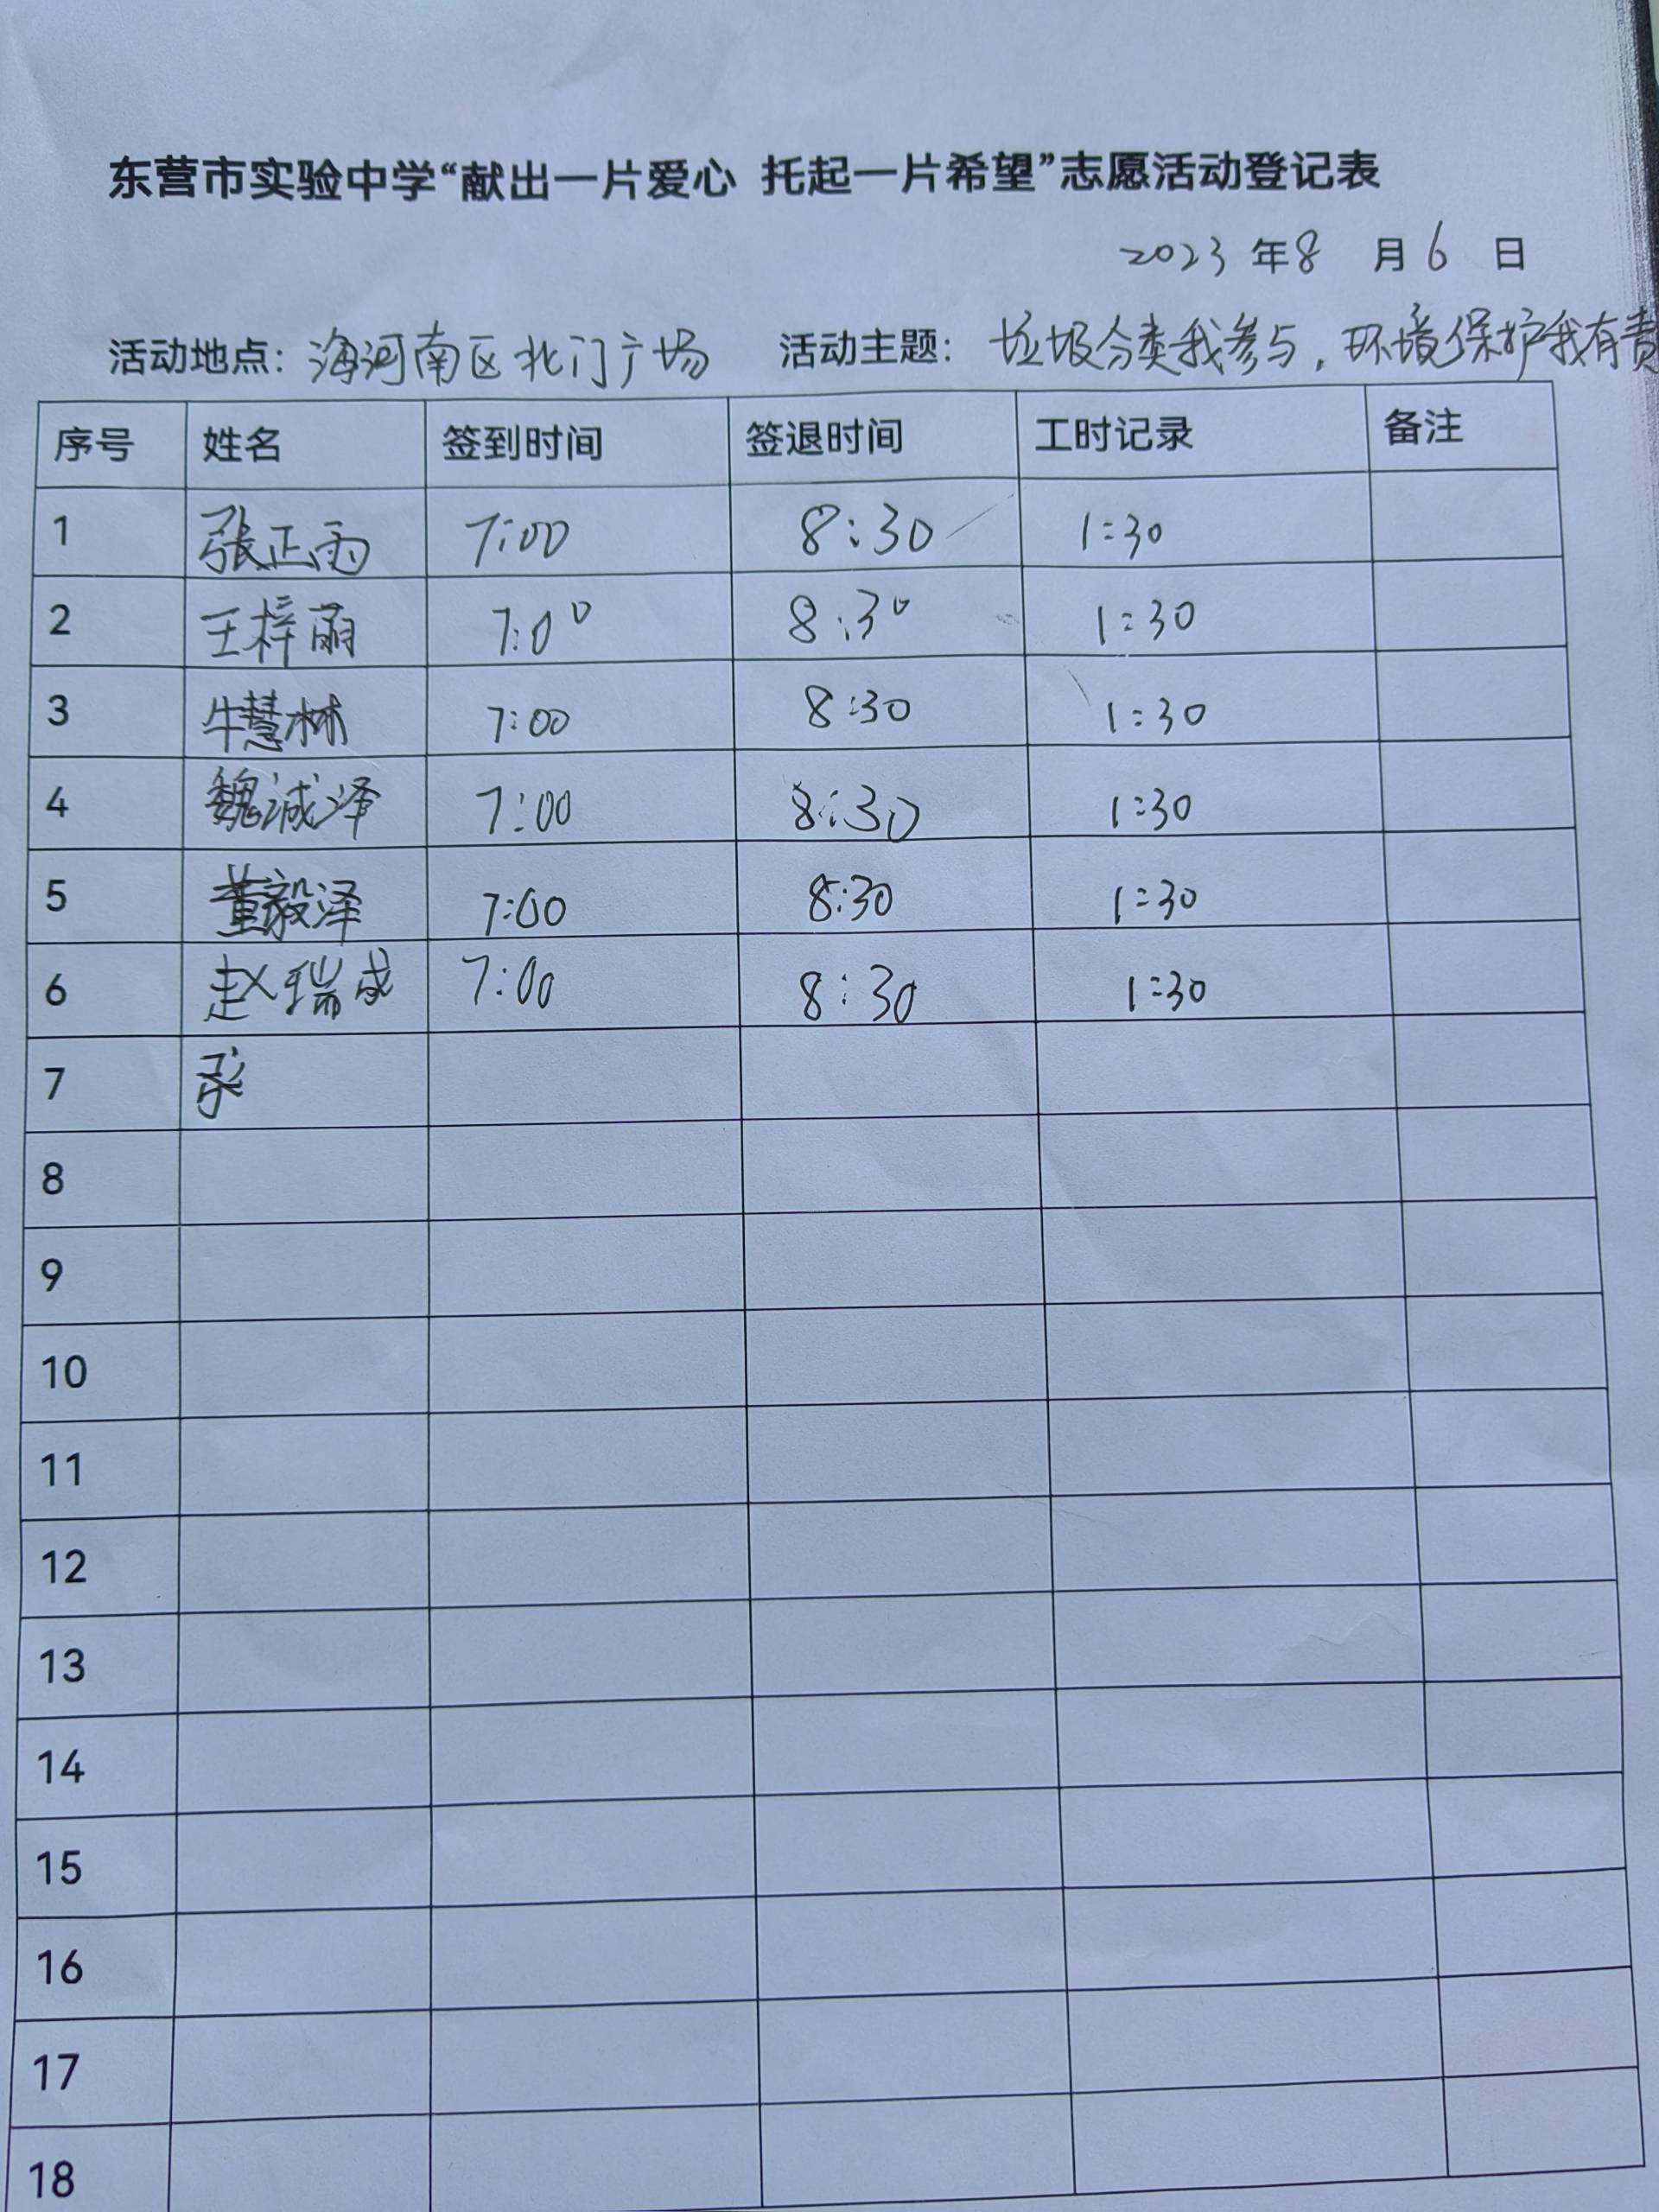 东营市实验中学“献出一片爱心 托起一片希望”志愿活动登记表
2023 年8 月6 日
活动地点：海河南区北门广场 活动主题：垃圾分类我参与，环境保护我有责
序号 姓名 签到时间 签退时间 工时记录 备注
1 张正雨 7:00 8:30 1:30
2 王梓萌 7:00 8:30 1:30
3 牛慧林 7:00 8:30 1:30
4 魏诚泽 7:00 8:30 1:30
5 董毅泽 7:00 8:30 1:30
6 赵瑞成 7:00 8:30 1:30
7
8
9
10
11
12
13
14
15
16
17
18